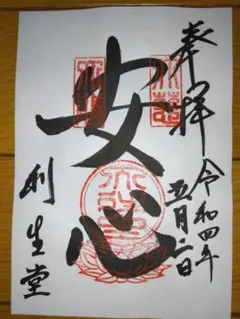 奉拝
令和四年
五月二日
安心
利生堂